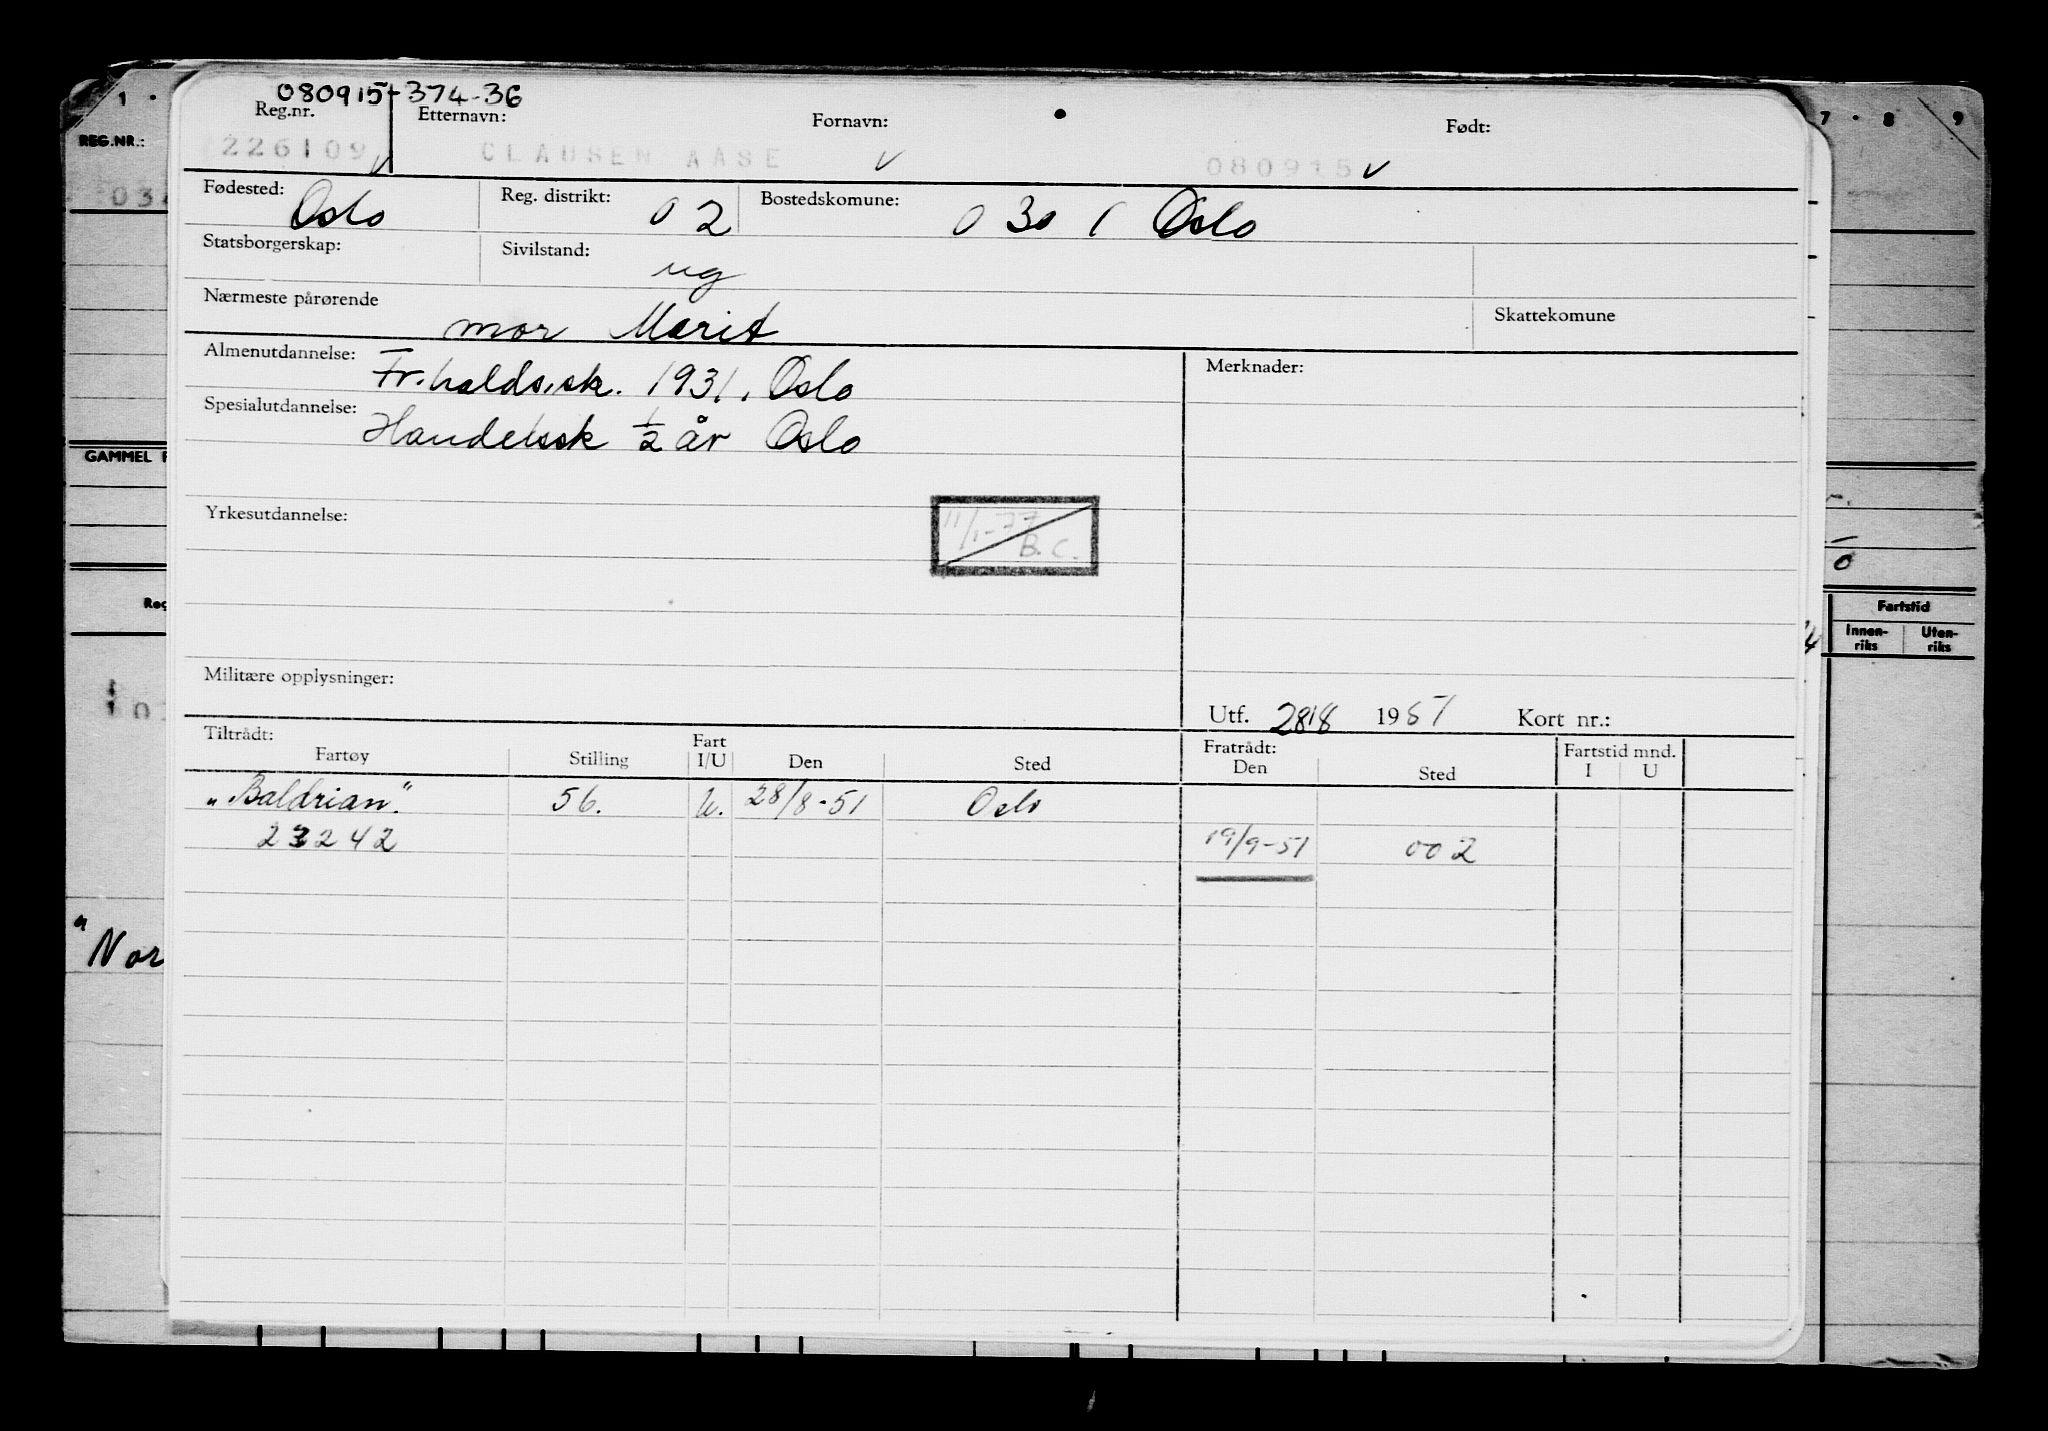 080915-374-36
1 · 7 · 8 9
REG.NR.: Reg.nr. Etternavn: Fornavn: Født:
226109 CLAUSEN AASE 080915
Fødested: Oslo Reg. distrikt: 02 Bostedskomune: 0301 Oslo
Statsborgerskap: Sivilstand: ug
Nærmeste pårørende mor Marit Skattekomune
Almenutdannelse: Fr.halds.sk. 1931. Oslo Merknader:
Spesialutdannelse: Handelssk ½ år Oslo
GAMMEL
Yrkesutdannelse: 11/1-77
B.C.
Fartstid
Innen-riks Uten-riks
Militære opplysninger:
Utf. 28/8 1951 Kort nr.:
Tiltrådt: Fratrådt:
Fartøy Stilling Fart I/U Den Sted Den Sted Fartstid mnd. I U
"Baldrian" 56. U. 28/8-51 Oslo
23242 19/9-51 002
"Nor